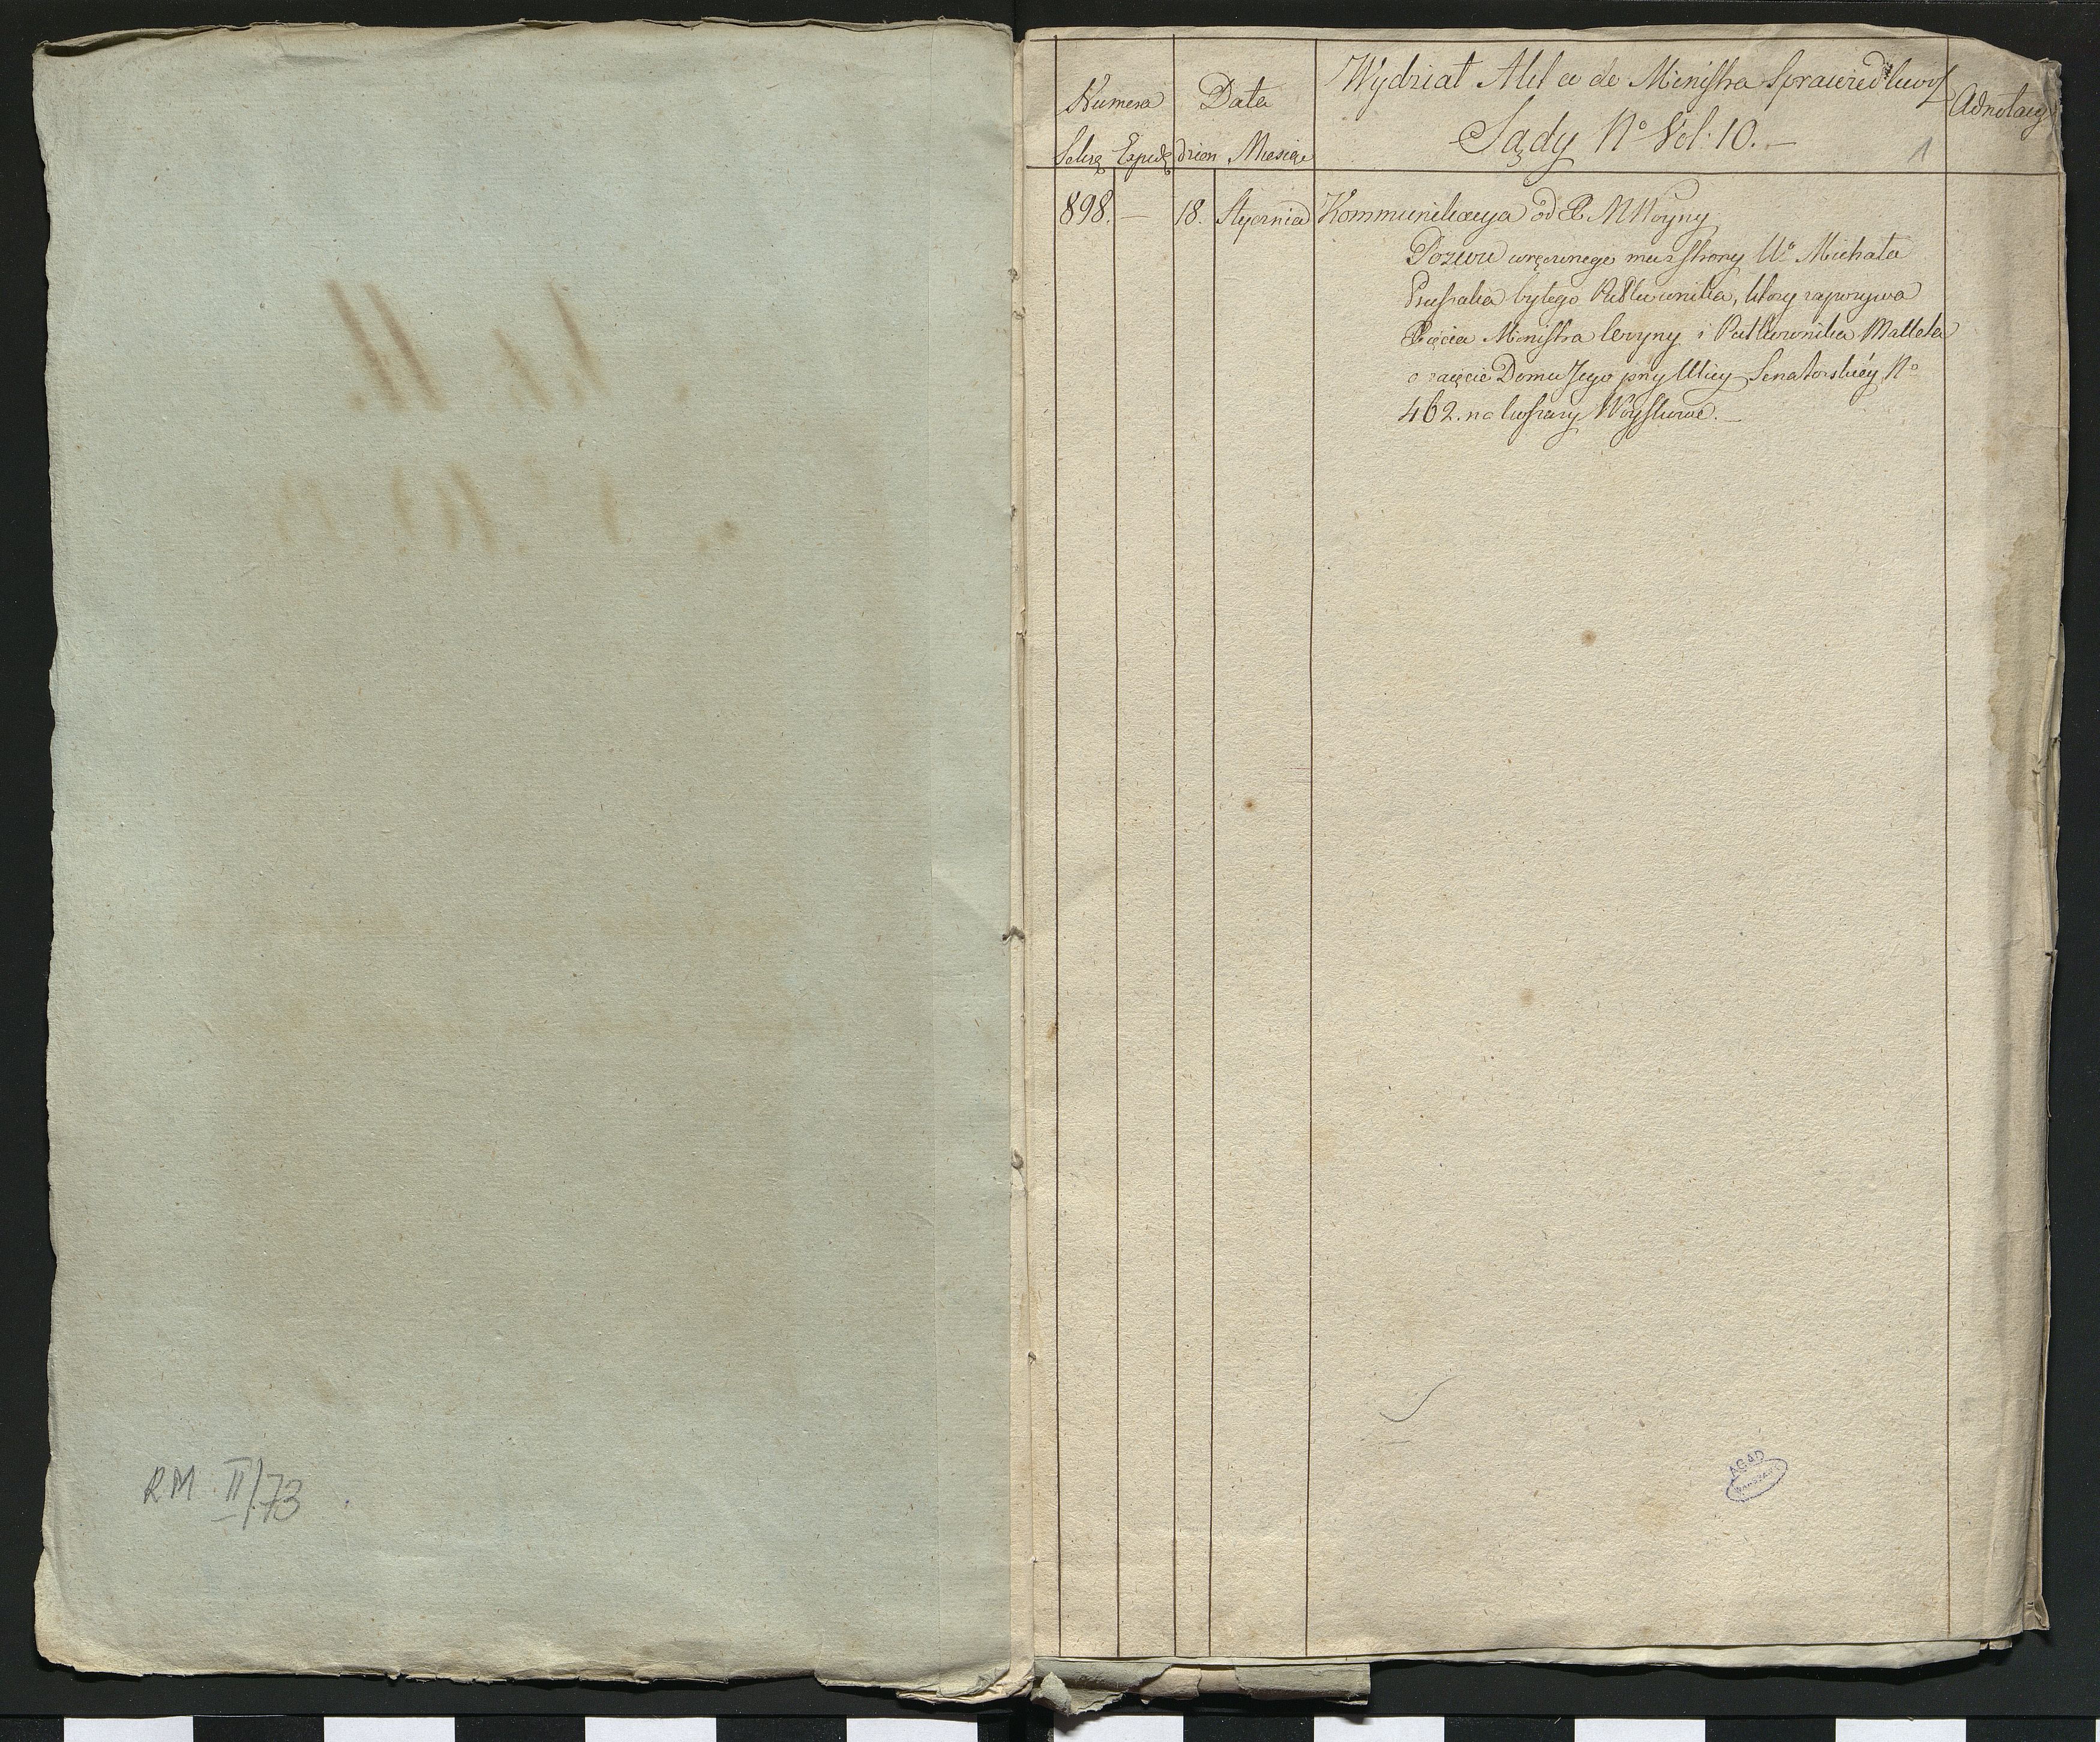 RM. II/73
Numera
Data
Wydział Akt a de Ministra Sprawiedliwoś
Adnotacy
Sądy No Vol: 10. —
1
Sekre Exped dzien Miesiąc
898. — 18. Stycznia Kommunikacya od X M Woyny
Pozwu wręczonego mu z strony Wo Michała
byłego Pułkownika, który zapozywa
Xięcia Ministra Woyny i Pułkownika Malleta
o zaięcie Domu Jego przy Ulicy Senatorskiéy No
462. na koszary Woyskowe. —
AGAD